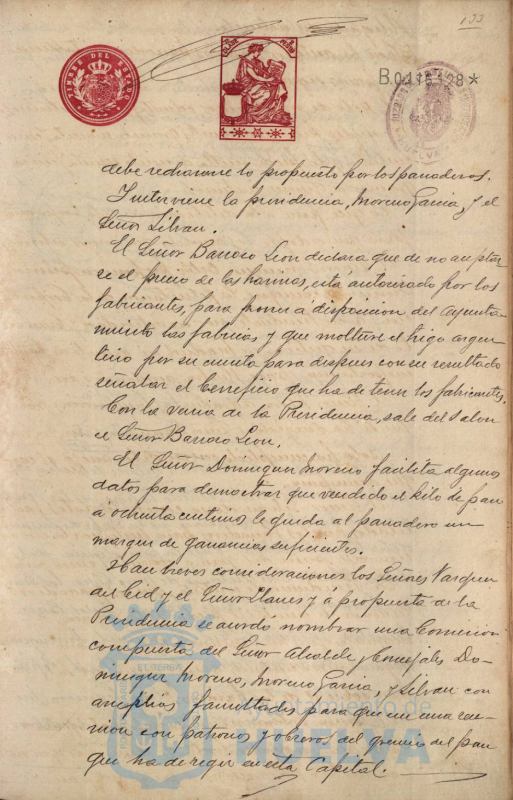 133
TIMBRE DEL ESTADO
B.0.116.128*
debe rechazarse lo propuesto por los panaderos.
Interviene la presidencia, Moreno Garcia, y el
Señor Silvan.
El Señor Barroso Leon declara que de no aceptar
se el precio de las harinas, está autorizado por los
fabricantes, para poner á disposicion del ayunta-
miento las fabricas y que molture el trigo argen
tino por su cuenta para despues con su resultado
señalar el beneficio que ha de tener los fabricantes.
Con la venia de la Presidencia, sale del salon
el Señor Barroso Leon.
El Señor Dominguez Moreno facilita algunos
datos para demostrar que vendido el kilo de pan
á ochenta centimos le queda al panadero un
margen de ganancias suficientes.
Hacen breves consideraciones los Señores Vazquez
del Cid y el Señor Llanes y á propuesta de la
Presidencia se acordó nombrar una Comision
compuesta del Señor Alcalde y Concejales Do-
minguez Moreno, Moreno Garcia, y Silvan con
amplias facultades para que en una reu-
nion con patronos y obreros del gremio del pan
que ha de regir en esta Capital.
Ayuntamiento de
HUELVA